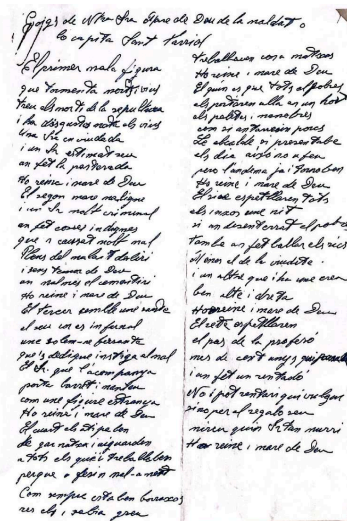 Gojgs de Ntra Sra Mare de Deu de la maldat o
la capita Sant Narcis
El primer mala figura
que tormenta morts i vius
treu els morts de la republica
i ha disgustat molts els vius
Una Sra enviudada
i un Sr estimat seu
an fet la pasterada
Ho reina i mare de Deu
El segon maro maligne
i un Sr molt criminal
an fet coses indignes
que a causat molt mal
Plens del mal y deliri
i sens temor de Deu
an al cementiri
Ho reina i mare de Deu
El tercer sembla una santa
el seu un es infernal
una solemne farsanta
que's dedique instigar al mal
El Sr. que l'acompanya
porta barret i
com una figura estranya
Ho reina i mare de Deu
El quart els tipe ben
de gas natron i aiguarden
a tots els que i treballaben
perque o fesin mal-a-ment
Com sempre estaben borratxos
res els i sabia greu
treballaven con a matxos
Ho reina i mare de Deu
El quin es que tots als pobres
els portaren alla en un hort
els paletes, manobres
com si enterresin porcs
Le alcalde si presentaba
els dia aixo no a feu
pero tandema ja i tornaben
Ho reina i mare de Deu
El sise espatllaren tots
els ninxos una nit
si an desenterrat als pobres
tambe an fet ballar els rics
Menos el de la viudeta
i un altre que i ha una creu
ben alta i dreta
Ho reina i mare de Deu
El sete espatllaren
el pas de la profeso
mes de cent anys que
i an fet un rentado
No i pot rentar qui vulgue
sino per al regalo seu
miren quin Satan murri
Ho reina i mare de Deu